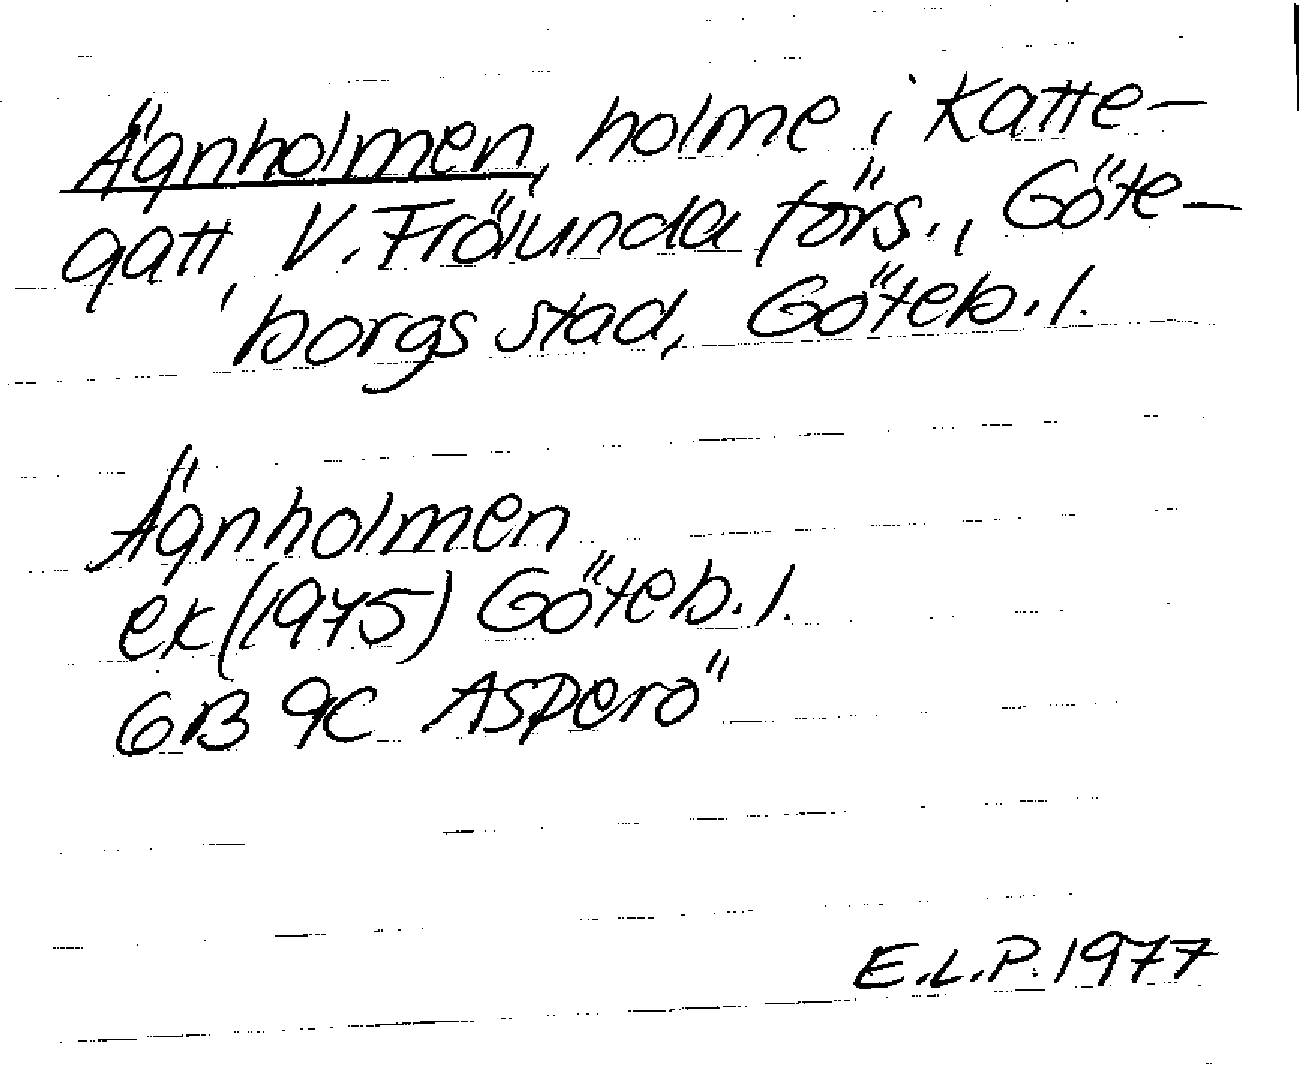 Ägnholmen, holme i Katte-
gatt, V. Frölunda förs., Göte-
borgs stad, Göteb. l.
Ägnholmen
ek (1975) Göteb. l.
6B 9c Asperö
E.L.P. 1977